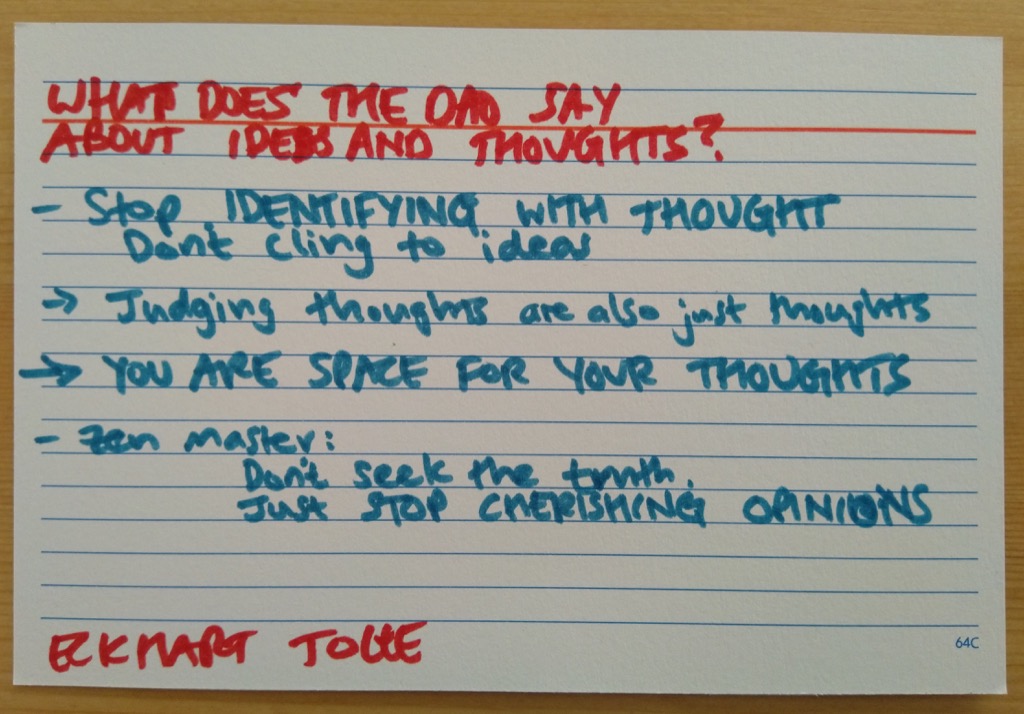 WHAT DOES THE DAO SAY
ABOUT IDEAS AND THOUGHTS?
- Stop IDENTIFYING WITH THOUGHT
Don't cling to ideas
→ Judging thoughts are also just thoughts
→ YOU ARE SPACE FOR YOUR THOUGHTS
- Zen master:
Don't seek the truth.
Just STOP CHERISHING OPINIONS
ECKHART TOLLE
64C